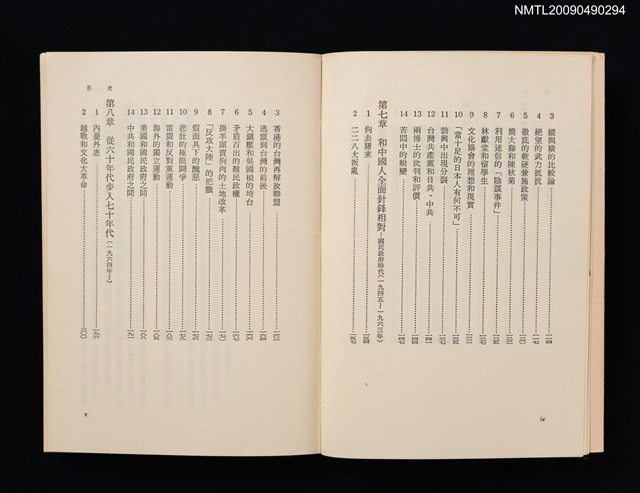 NMTL20090490294
3 縱與橫的比較論
4 絕望的武力抵抗
5 徹底的軟硬兼施政策
6 簡大獅和陳秋菊
7 利用迷信的「陰謀事件」
8 林獻堂和留學生
9 文化協會的理想和現實
10 「當十足的日本人有何不可」
11 勃興中出現分裂
12 台灣共產黨和日共、中共
13 兩博士的批判和評價
14 苦悶中的蛻變
第七章 和中國人全面針鋒相對—國民政府時代(一九四五~一九六三年)
1 狗去豬來
2 二二八大叛亂
iv
3 香港的台灣再解放聯盟
4 逃竄到台灣的前後
5 大鎮壓和吳國楨的垮台
6 矛盾百出的難民政權
7 掛羊頭賣狗肉的土地改革
8 「反攻大陸」的把戲
9 假面具下的醜惡
10 悲壯的極限鬪爭
11 雷震和反對黨運動
12 海外的獨立運動
13 美國和國民政府之間
14 中共和國民政府之間
第八章 從六十年代步入七十年代(一九六四年~)
1 內憂外患
2 越戰和文化大革命
目次
v